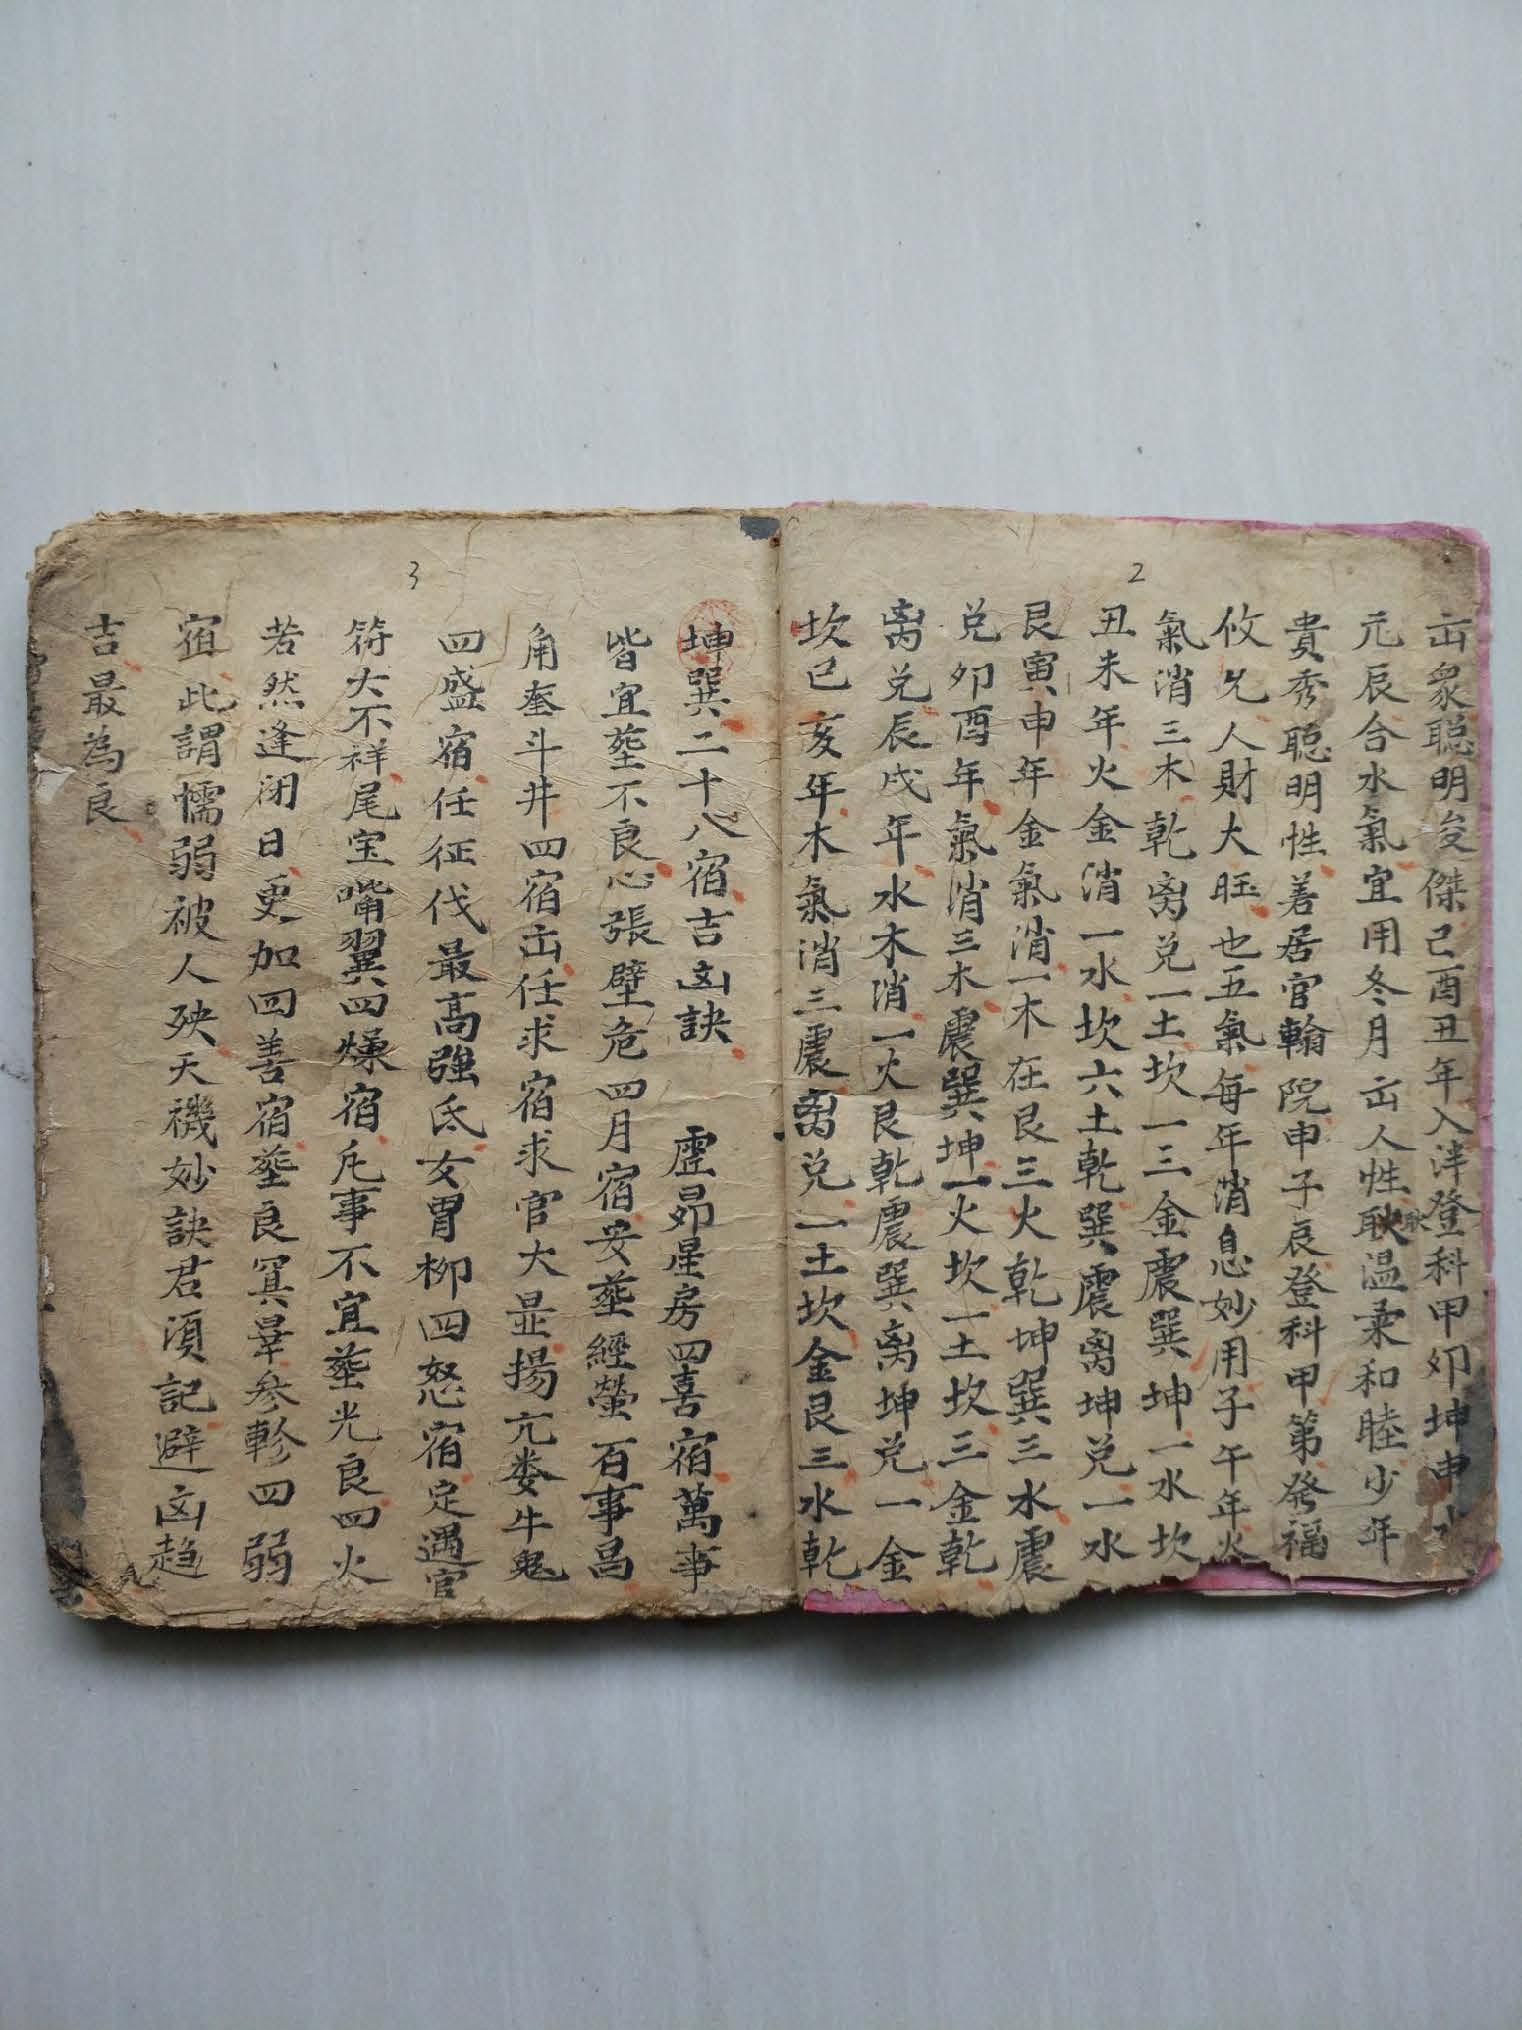 2
出衆聡明夋傑己酉丑年入泮登科甲夘坤申
元辰合水氣宜用冬月出人性耿温柔和睦少年
貴秀聡明性善居官翰院申子辰登科甲第発福
攸久人財大旺也五氣每年消息妙用子午年火
氣消三木乾离兑一土坎一三金震巽坤一水坎
丑未年火金消一水坎六土乾巽震离坤兑一水
艮寅申年金氣消一木在艮三火乾坤巽三水震
兑夘酉年氣消三木震巽坤一火坎一土坎三金乾
离兑辰戌年水木消一火艮乾震巽离坤兑一金
坎巳亥年木氣消三震离兑一土坎金艮三水乾
3
坤巽二十八宿吉凶訣 虚昴星房四喜宿萬事
皆宜塟不良心張壁危四月宿安塟經營百事昌
角奎斗井四宿出任求宿求官大显揚亢娄牛鬼
四盛宿任征伐最高強氐女胃柳四怒宿定遇官
符大不祥尾宝嘴翼四煉宿凢事不宜塟光良四火
若然逢闭日更加四善宿塟良箕畢参軫四弱
宿此謂懦弱被人殃天禨妙訣君湏記避凶趋
吉最為良